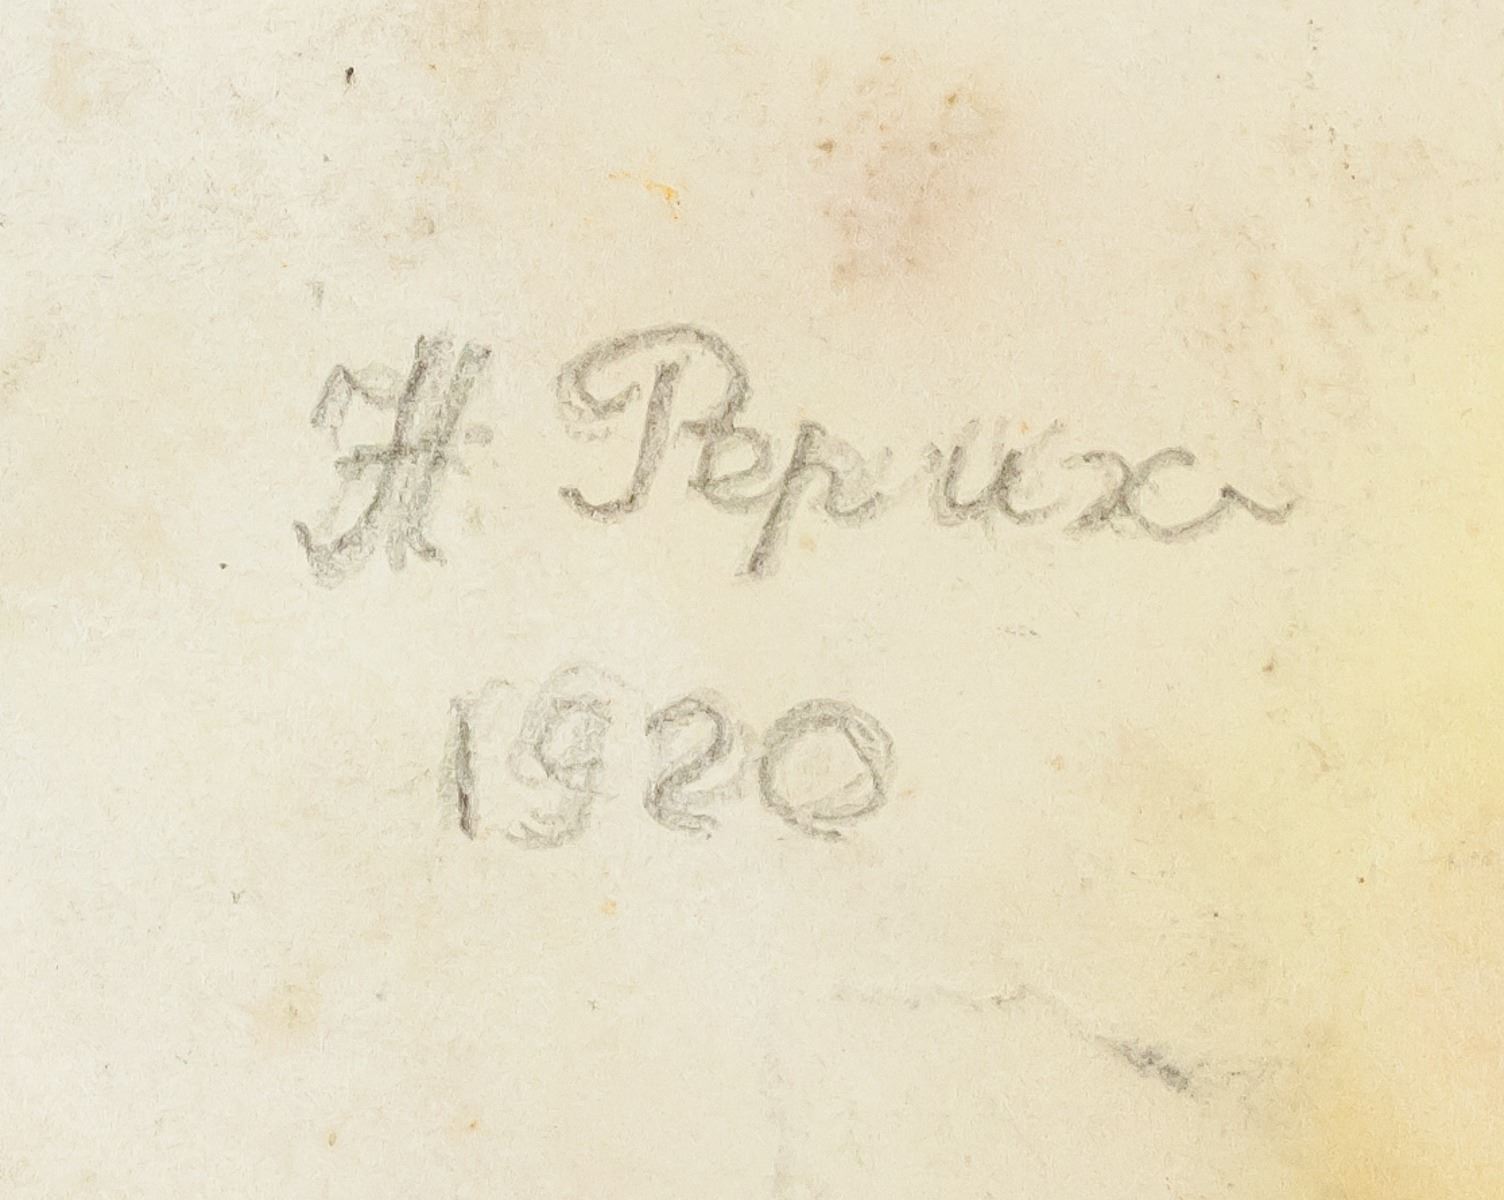 Н Рерих
1920